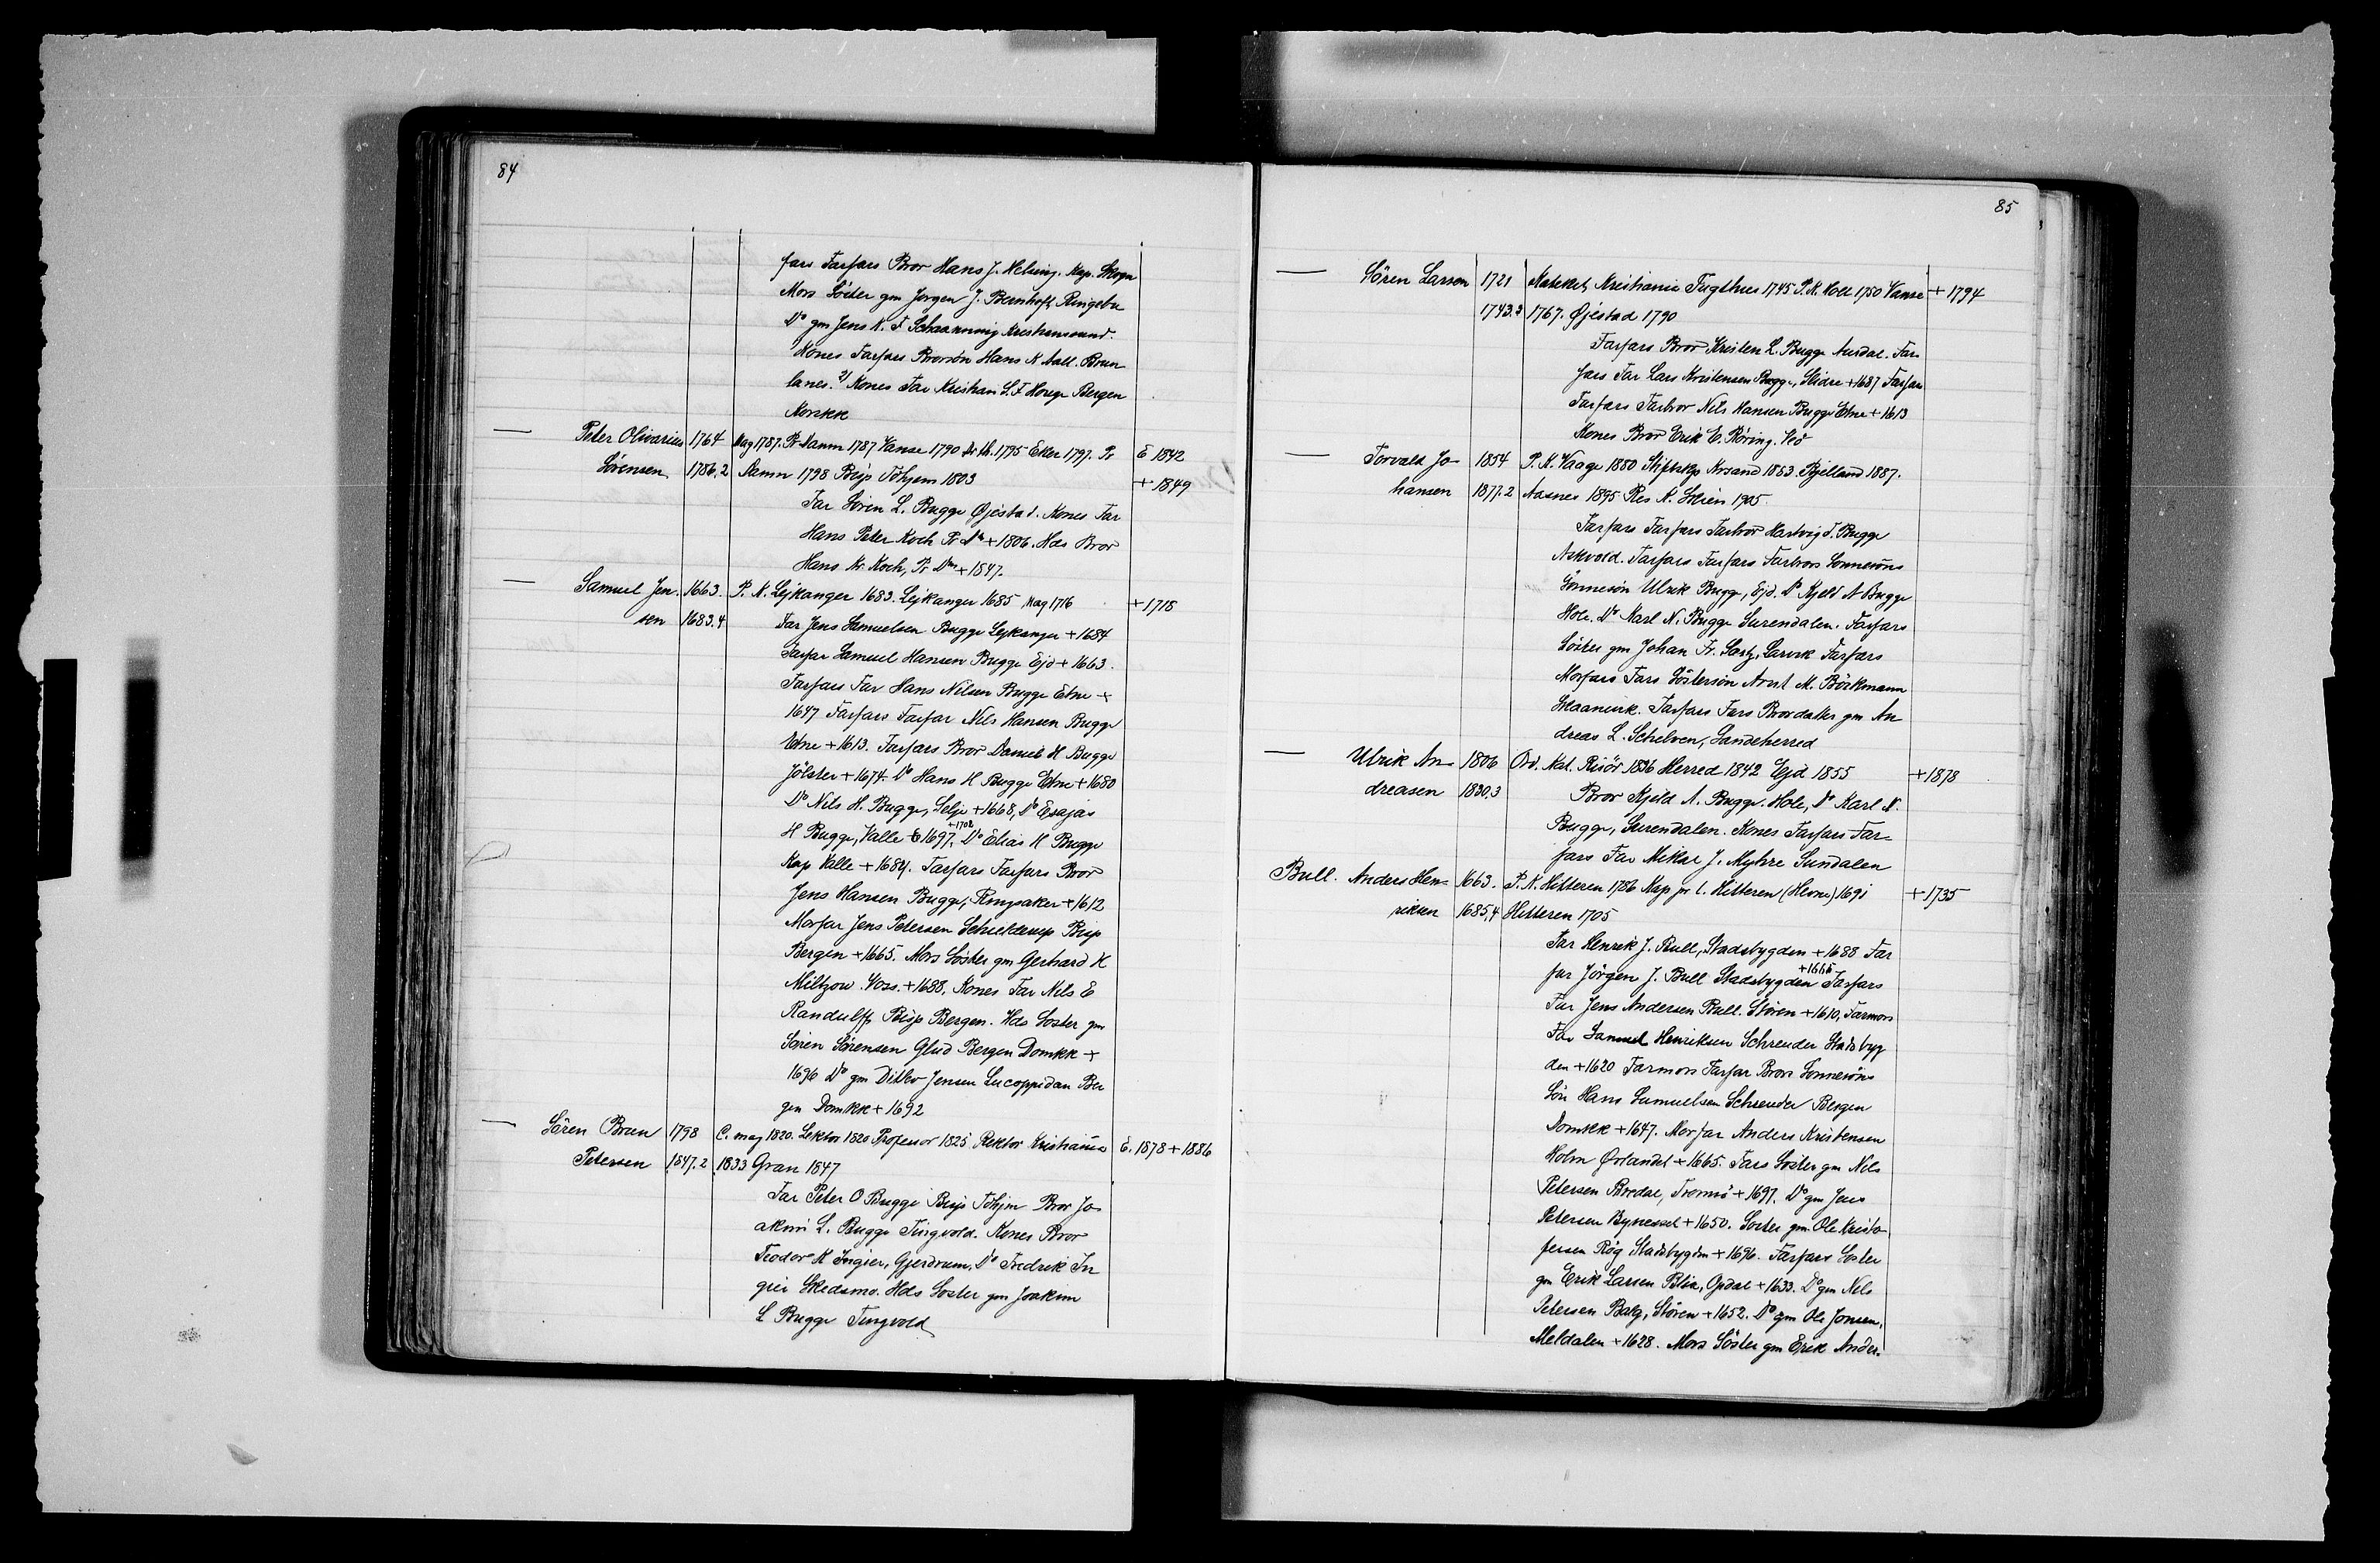 84
fars Farfars Bror Hans J. Helsing. Kap. Skogn
Mors Söster gm Jorgen J. Bernhoft, Ringebu
Do gm Jens N. F Schaanning Kristiansund.
Kones Farfars Brorsön Hans N Aall. Brun
lanes. 2/ Kones Far Kristian S. F Houge Bergen
Korskk
— Peter Olivarius 1764 Mag 1787. Pr Danm 1787 Vanse 1790 Dr th. 1795 Eker 1797. Pr E 1842
Sörensen 1786.2 Danm 1798 Bisp Tdhjem 1803 + 1849
Far Sören L. Bugge Øjestad. Kones Far
Hans Peter Koch Pr Dm + 1806. Hds Bror
Hans Kr. Koch, Pr Dm + 1847.
— Samuel Jen- 1663. P. K. Lejkanger 1683. Lejkanger 1685 Mag 1716 + 1718
sen 1683.4 Far Jens Samuelsen Bugge Lejkanger + 1684
Farfar Samuel Hansen Bugge Ejd + 1663.
Farfars Far Hans Nilsen Bugge Etne +
1647 Farfars Farfar Nils Hansen Bugge
Etne + 1613. Farfars Bror Daniel H Bugge
Jölster + 1674. Do Hans H Bugge Etne + 1680
Do Nils H. Bugge, Selje + 1668, Do Esajas
H Bugge, Valle E 1697, +1702 Do Elias H Bugge
Kap Valle + 1684. Farfars Farfars Bror
Jens Hansen Bugge, Ringsaker + 1612
Morfar Jens Petersen Schielderup Bisp
Bergen + 1665. Mors Söster gm Gerhard H
Miltzow. Voss. + 1688. Kones Far Nils E
Randulff, Bisp Bergen. Hds Soster gm
Sören Sörensen Glud Bergen Domkk +
1696 Do gm Ditlev Jensen Lucoppidan Ber
gen Domkk + 1692
— Sören Brun 1798 C. mag 1820. Lektor 1820 Professor 1825 Rektor Kristiania E. 1878 + 1886
Petersen 1847.2 1833 Gran 1847
Far Peter O Bugge Bisp Tdhjm Bror Jo-
akim L. Bugge Tingvold. Kones Bror
Teodor K Ingier, Gjerdrum, Do Fredrik In
gier Skedsmo. Hds Soster gm Joakim
L Bugge Tingvold
85
— Sören Larsen 1721 Kateket, Kristiania Tugthus 1745 P. K. Holt 1750 Vanse + 1794
1743.3 1767. Øjestad 1790
Farfars Bror Kristen L. Bugge Aurdal. Far-
fars Far Lars Kristensen Bugge, Slidre + 1687 Farfars
Farfars Farbror Nils Hansen Bugge Etne + 1613
Kones Bror Erik E. Röring. Ved
— Torvald Jo- 1854 P. K. Vaage 1880 Stiftskp Krsand 1883. Bjelland 1887.
hansen 1877.2 Aasnes 1895 Res K. Skien 1905
Farfars Farfars Farbror Hartvig F. Bugge
Askvold. Farfars Farfars Farbrors Sonnesöns
Sonnesön Ulrik Bugge, Ejd. Do Kjeld A Bugge
Hole. Do Karl N. Bugge Surendalen. Farfars
Söster gm Johan Fr. Sartz, Larvik Farfars
Morfars Fars Söstersön Arnt M. Böckmann
Skaanevik. Farfars Fars Brordatter gm An
dreas L. Schelven, Sandeherred
— Ulrik An- 1806 Ord. Kat. Risör 1836 Herred 1842 Ejd 1855 + 1878
dreasen 1830.3 Bror Kjeld A. Bugge. Hole, Do Karl N.
Bugge, Surendalen. Kones Farfars Far-
fars Far Mikal J. Myhre Sundalen
Bull. Anders Hen- 1663. P. K. Hitteren 1786 Kap pr l. Hitteren (Hevne) 1691 + 1735
riksen 1685.4 Hitteren 1705
Far Henrik J. Bull, Stadsbygden + 1688 Far
far Jörgen J. Bull Stadsbygden +1666 Farfars
Far Jens Andersen Bull. Stören + 1610, Farmors
Far Samuel Henriksen Schreuder Stadsbyg
den + 1620 Farmors Farfar Brors Sonnesöns
Sön Hans Samuelsen Schreuder Bergen
Domkk + 1647. Morfar Anders Kristensen
Holm Ørlandet + 1665. Fars Söster gm Nils
Petersen Bredal, Tromsö + 1697. Do gm Jens
Petersen Bynesset + 1650. Soster gm Ole Kristo-
fersen Rög Stadsbygden + 1696. Farfars Soster
gm Erik Larsen Blix, Opdal + 1633. Do gm Nils
Petersen Balg, Stören + 1652. Do gm Ole Jonsen,
Meldalen + 1628. Mors Söster gm Erik Ander-